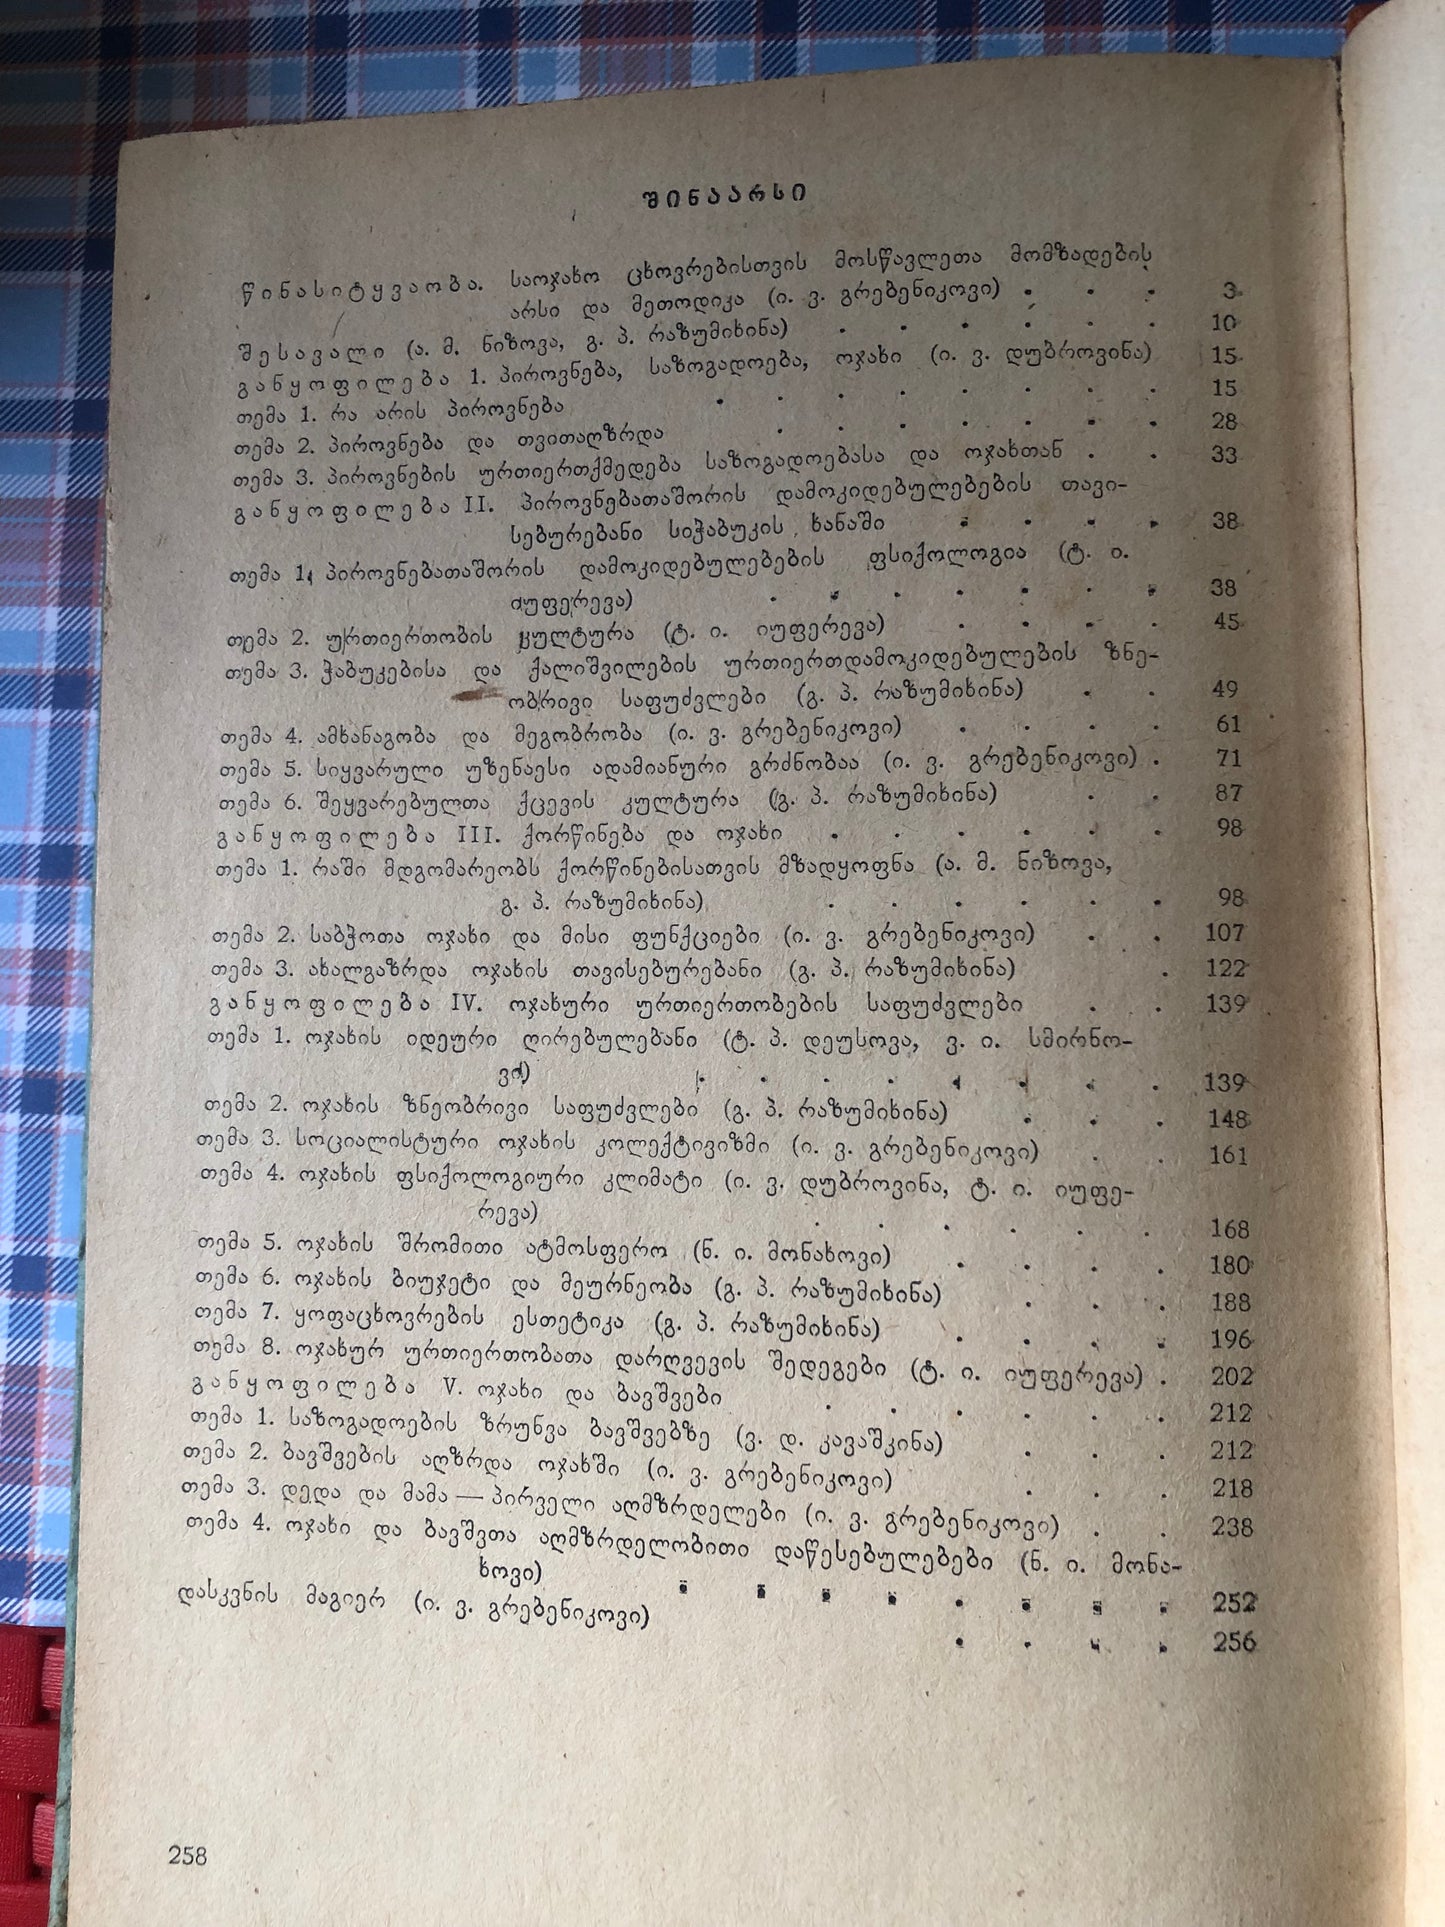 შინაარსი
წინასიტყვაობა. საოჯახო ცხოვრებისთვის მოსწავლეთა მომზადების
არსი და მეთოდიკა (ი. ვ. გრებენიკოვი) . . . 3
შესავალი (ა. მ. ნიზოვა, გ. პ. რაზუმიხინა) . . . . . . 10
განყოფილება 1. პიროვნება, საზოგადოება, ოჯახი (ი. ვ. დუბროვინა) 15
თემა 1. რა არის პიროვნება . . . . . . . . 15
თემა 2. პიროვნება და თვითაღზრდა . . . . . . . 28
თემა 3. პიროვნების ურთიერთქმედება საზოგადოებასა და ოჯახთან . . 33
განყოფილება II. პიროვნებათაშორის დამოკიდებულებების თავი-
სებურებანი სიჭაბუკის ხანაში . . . . 38
თემა 1. პიროვნებათაშორის დამოკიდებულებების ფსიქოლოგია (ტ. ი.
იუფერევა) . . . . . . . 38
თემა 2. ურთიერთობის კულტურა (ტ. ი. იუფერევა) . . . . 45
თემა 3. ჭაბუკებისა და ქალიშვილების ურთიერთდამოკიდებულების ზნე-
ობრივი საფუძვლები (გ. პ. რაზუმიხინა) . . 49
თემა 4. ამხანაგობა და მეგობრობა (ი. ვ. გრებენიკოვი) . . . . 61
თემა 5. სიყვარული უზენაესი ადამიანური გრძნობაა (ი. ვ. გრებენიკოვი) . 71
თემა 6. შეყვარებულთა ქცევის კულტურა (გ. პ. რაზუმიხინა) . . 87
განყოფილება III. ქორწინება და ოჯახი . . . . . . 98
თემა 1. რაში მდგომარეობს ქორწინებისათვის მზადყოფნა (ა. მ. ნიზოვა,
გ. პ. რაზუმიხინა) . . . . . . 98
თემა 2. საბჭოთა ოჯახი და მისი ფუნქციები (ი. ვ. გრებენიკოვი) . . 107
თემა 3. ახალგაზრდა ოჯახის თავისებურებანი (გ. პ. რაზუმიხინა) . 122
განყოფილება IV. ოჯახური ურთიერთობების საფუძვლები . . 139
თემა 1. ოჯახის იდეური ღირებულებანი (ტ. პ. დეუსოვა, ვ. ი. სმირნო-
ვი) . . . . . . . . 139
თემა 2. ოჯახის ზნეობრივი საფუძვლები (გ. პ. რაზუმიხინა) . . . 148
თემა 3. სოციალისტური ოჯახის კოლექტივიზმი (ი. ვ. გრებენიკოვი) . . 161
თემა 4. ოჯახის ფსიქოლოგიური კლიმატი (ი. ვ. დუბროვინა, ტ. ი. იუფე-
რევა) . . . . . . 168
თემა 5. ოჯახის შრომითი ატმოსფერო (ნ. ი. მონახოვი) . . . . 180
თემა 6. ოჯახის ბიუჯეტი და მეურნეობა (გ. პ. რაზუმიხინა) . . . 188
თემა 7. ყოფაცხოვრების ესთეტიკა (გ. პ. რაზუმიხინა) . . . . 196
თემა 8. ოჯახურ ურთიერთობათა დარღვევის შედეგები (ტ. ი. იუფერევა) . 202
განყოფილება V. ოჯახი და ბავშვები . . . . . . 212
თემა 1. საზოგადოების ზრუნვა ბავშვებზე (ვ. დ. კავაშკინა) . . . 212
თემა 2. ბავშვების აღზრდა ოჯახში (ი. ვ. გრებენიკოვი) . . . 218
თემა 3. დედა და მამა — პირველი აღმზრდელები (ი. ვ. გრებენიკოვი) . . 238
თემა 4. ოჯახი და ბავშვთა აღმზრდელობითი დაწესებულებები (ნ. ი. მონა-
ხოვი) . . . . . . . . 252
დასკვნის მაგიერ (ი. ვ. გრებენიკოვი) . . . . 256
258